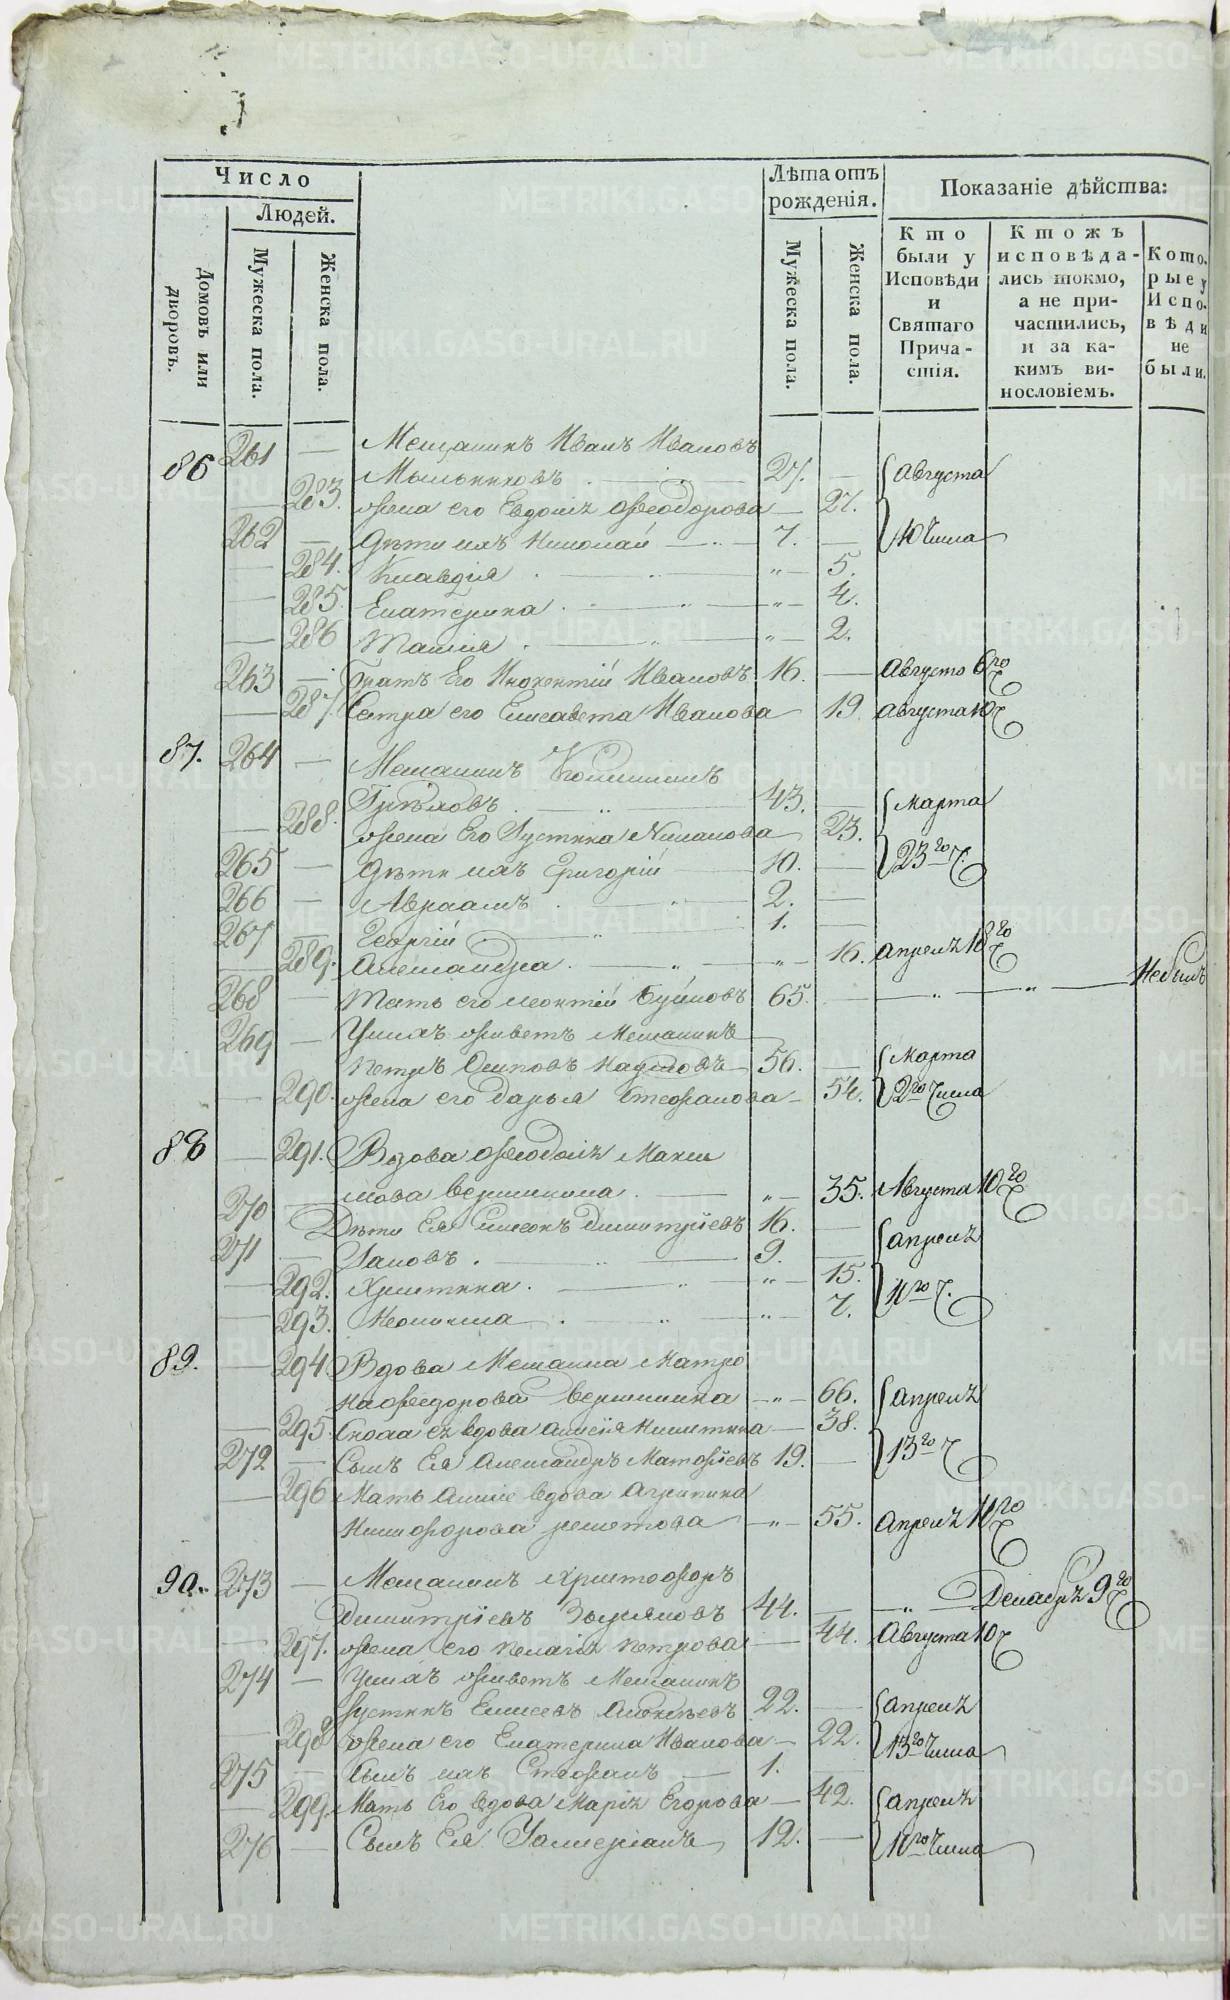 Число
Людей.
Домовъ или дворовъ.
Мужеска пола.
Женска пола.
Лѣта отъ рожденія.
Мужеска пола.
Женска пола.
Показаніе дѣйства:
Кто были у Исповѣди и Святаго Причастія.
Ктожъ исповѣдались токмо, а не причастились, и за какимъ винословіемъ.
Которые у Исповѣди не были.
86 261 — Мещанинъ Иванъ Ивановъ
Мыльниковъ 27. — Августа
— 283. жена его Евдокія Феодорова — 27.
262 — Дѣти ихъ Николай 7. — 10 числа
— 284. Клавдія „ — 5.
— 285. Екатерина „ — 4.
— 286 „ — 2.
263 — Братъ Его Инокентій Ивановъ 16. — Августа 6го
— 287. Сестра его Елисавета Иванова 19 Августа 10
87. 264 — Мещанинъ
43. — Марта
— 288. жена Его Устина 23.
265 — Дѣти ихъ Григорій 10. — 23го ч.
266 — Авраамъ 2. —
267 — Георгій 1. —
— 289. Александра „ — 16. Апреля 18го
268 — его Леонтій 65. — „ — „ — Небылъ
269 — Унихъ живетъ Мещанинъ
Петръ Осиповъ 56. — Марта
— 290. жена его Дарья Стефанова — 54. 2го числа
88 — 291. Вдова Феодосія Макси
мова Вершинина „ — 35. Августа 10го
270 — Дѣти Ея Симеонъ Димитріевъ 16. — Апреля
271 — Іаковъ 9. —
— 292. Христина „ — 15. 11го ч.
— 293. Неонила „ — 7.
89. — 294. Вдова Мещанка Матро
на Федорова Вершинина — „ — 66. Апреля
— 295. Сноха ея вдова Никитина — 38.
272 — Сынъ Ея Александръ 19. — 13го ч
— 296 Мать вдова Агрипина
Никифорова — „ — 55. Апреля 11го
90. 273 — Мещанинъ Христофоръ
Димитріевъ 44. — „ — Декабря 9го
— 297. жена его Пелагія Петрова — 44. Августа 10
274 — Унихъ живетъ Мещанинъ
Іустинъ Елисеевъ 22. — Апреля
— 298 жена его Екатерина Иванова — 22. 13го числа
275 — Сынъ ихъ Стефанъ — 1.
— 299. Мать Его вдова Марія Егорова — 42. Апреля
276 — Сынъ Ея 12. — 11го числа
METRIKI.GASO-URAL.RU